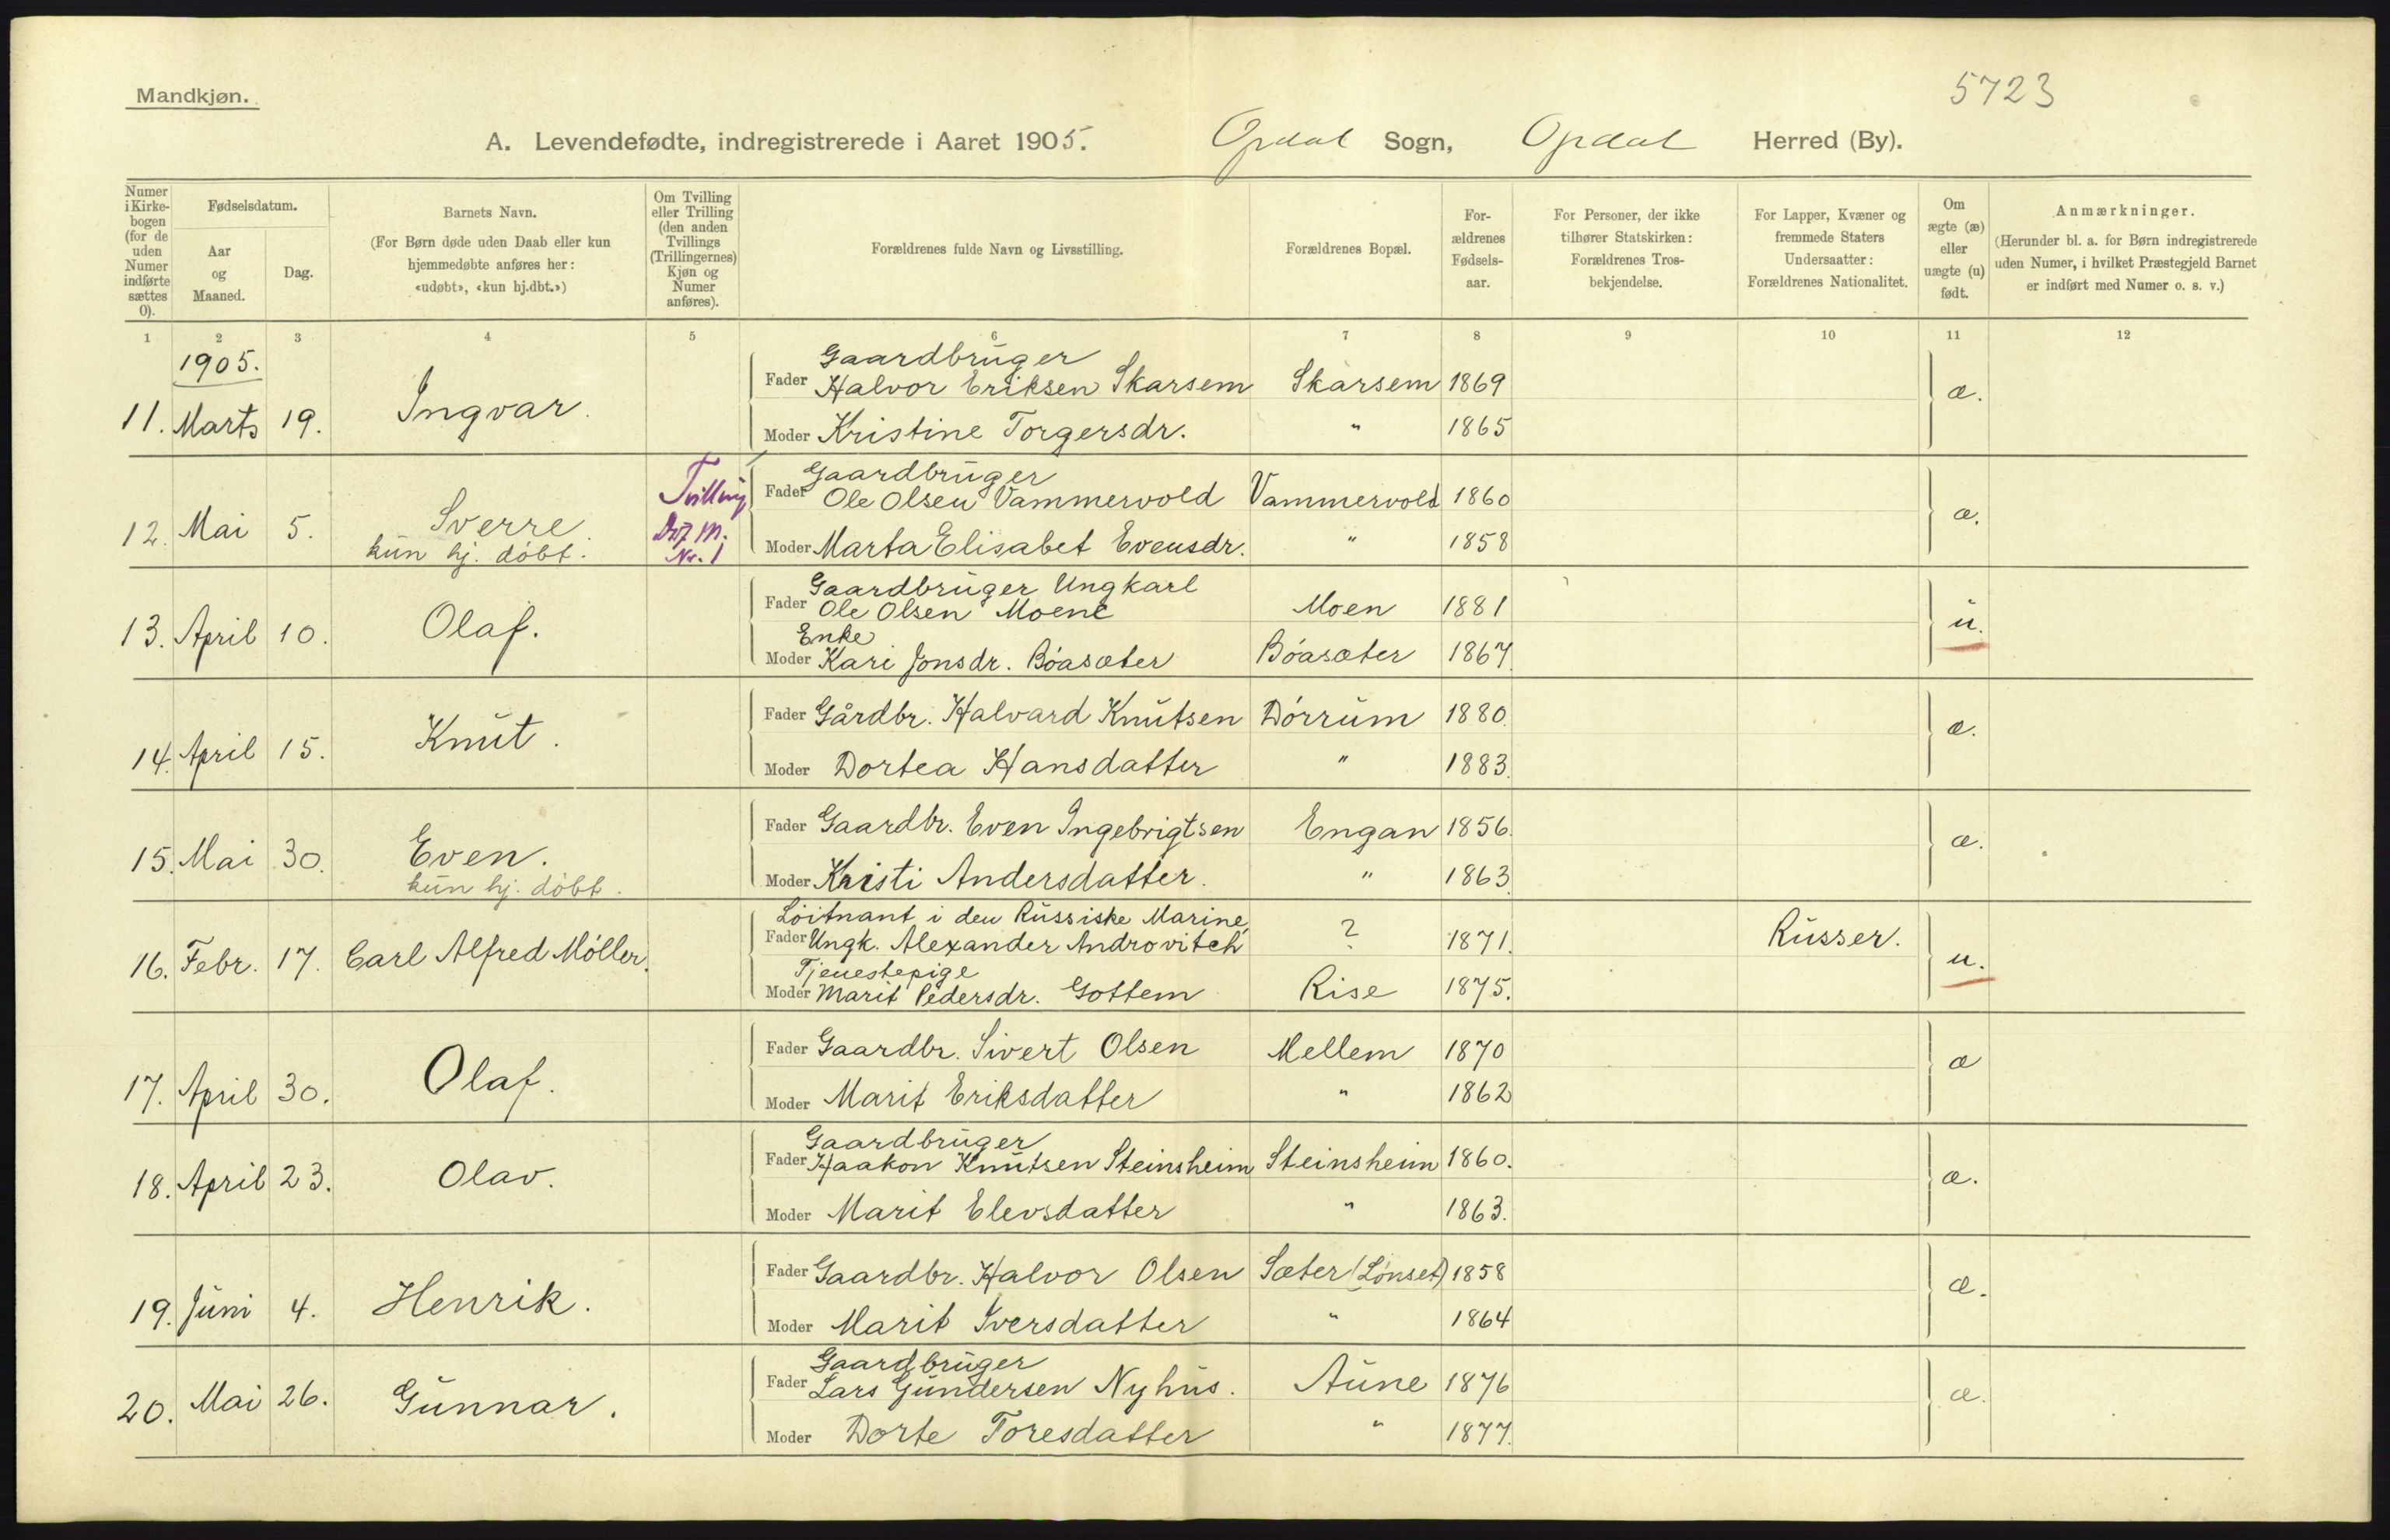 5723
Mandkjøn.
A. Levendefødte, indregistrerede i Aaret 1905. Opdal Sogn, Opdal Herred (By).
Numer i Kirkebogen (for de uden Numer indførte sættes 0).
Fødselsdatum.
Aar og Maaned.
Dag.
Barnets Navn.
(For Børn døde uden Daab eller kun hjemmedøbte anføres her: «udøbt», «kun hj.dbt.»)
Om Tvilling eller Trilling (den anden Tvillings (Trillingernes) Kjøn og Numer anføres).
Forældrenes fulde Navn og Livsstilling.
Forældrenes Bopæl.
Forældrenes Fødselsaar.
For Personer, der ikke tilhører Statskirken: Forældrenes Trosbekjendelse.
For Lapper, Kvæner og fremmede Staters Undersaatter: Forældrenes Nationalitet.
Om ægte (æ) eller uægte (u) født.
Anmærkninger.
(Herunder bl. a. for Børn indregistrerede uden Numer, i hvilket Præstegjeld Barnet er indført med Numer o. s. v.)
1 2 3 4 5 6 7 8 9 10 11 12
1905.
Gaardbruger
11. Marts 19. Ingvar. Fader Halvor Eriksen Skarsem Skarsem 1869 æ.
Moder Kristine Torgersdr. " 1865
Gaardbruger
12. Mai 5. Sverre Tvilling Fader Ole Olsen Vammervold Vammervold 1860 æ.
kun hj. döbt. Ddf M. Nr. 1 Moder Marta Elisabet Evensdr. " 1858
Gaardbruger Ungkarl
13. April 10. Olaf. Fader Ole Olsen Moene Moen 1881 u.
Enke
Moder Kari Jonsdr. Böasæter Böasæter 1867.
14. April 15. Knut. Fader Gårdbr. Halvard Knutsen Dörrum 1880. æ.
Moder Dortea Hansdatter " 1883.
15. Mai 30. Even. Fader Gaardbr. Even Ingebrigtsen Engan 1856. æ.
kun hj. döbt. Moder Kristi Andersdatter. " 1863.
Löitnant i den Russiske Marine,
16. Febr. 17. Carl Alfred Möller. Fader Ungk. Alexander Androvitch ? 1871. Russer. u.
Tjenestepige
Moder Marit Pedersdr. Gottem Rise 1875.
17. April 30. Olaf. Fader Gaardbr. Sivert Olsen Mellem 1870 æ
Moder Marit Eriksdatter " 1862
Gaardbruger
18. April 23. Olav. Fader Haakon Knutsen Steinsheim Steinsheim 1860. æ.
Moder Marit Elevsdatter " 1863.
19. Juni 4. Henrik. Fader Gaardbr. Halvor Olsen Sæter (Lönset) 1858 æ.
Moder Marit Iversdatter " 1864
Gaardbruger
20. Mai 26. Gunnar. Fader Lars Gundersen Nyhus. Aune 1876 æ.
Moder Dorte Toresdatter " 1877.